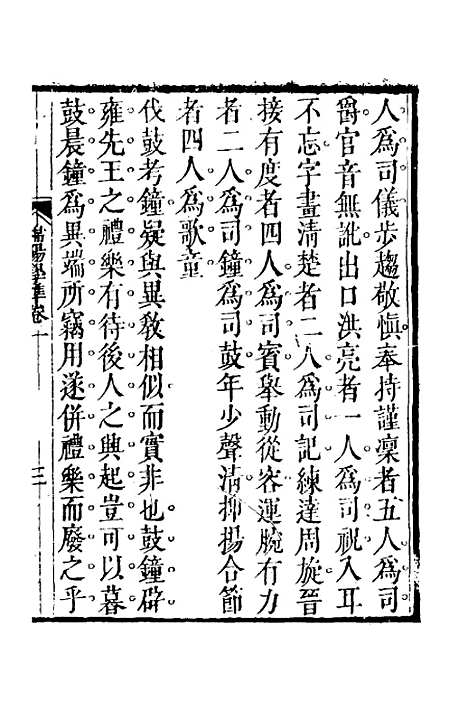 人為司儀步趨敬慎奉持謹凜者五人為司
爵官音無訛出口洪亮者一人為司祝入耳
不忘字畫清楚者二人為司記練達周旋晉
接有度者四人為司賓舉動從容運腕有力
者二人為司鐘為司鼓年少聲清抑揚合節
者四人為歌童
伐鼓考鐘疑與異敎相似而實非也鼓鐘辟
雍先王之禮樂有待後人之興起豈可以暮
鼓晨鐘為異端所竊用遂併禮樂而廢之乎
卷一
三